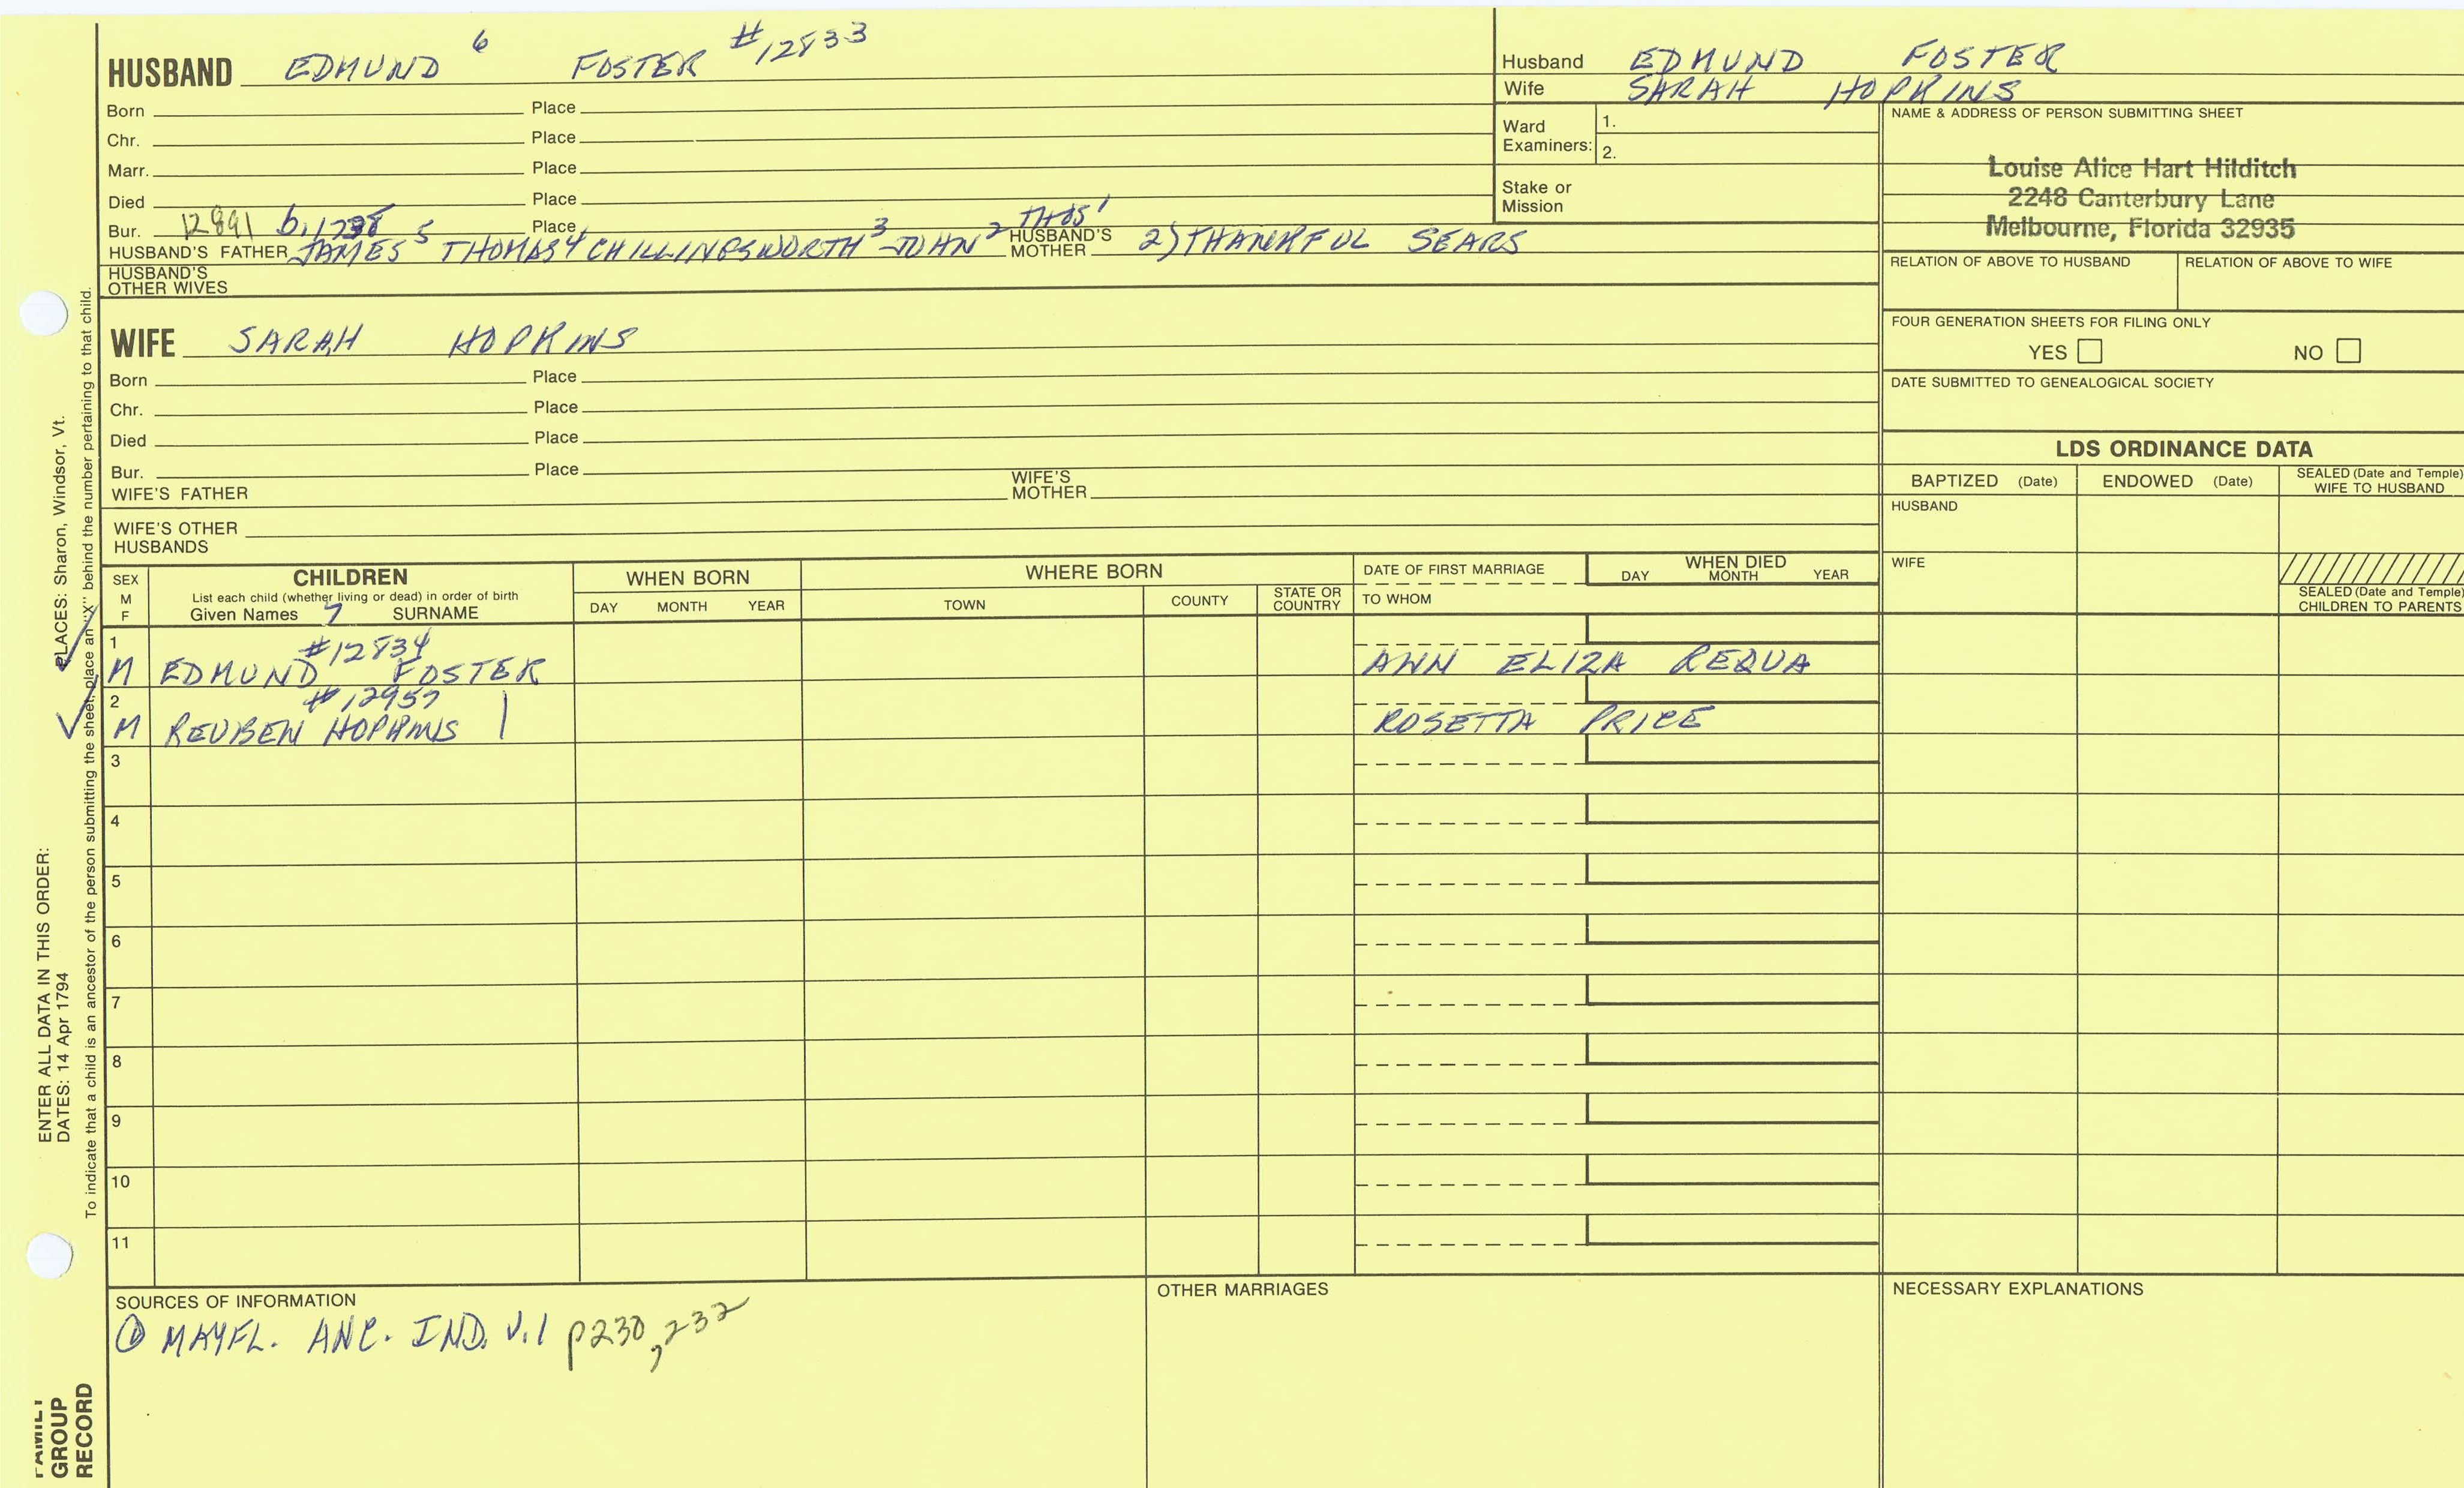 HUSBAND EDMUND 6 FOSTER #12833
Born Place
Chr. Place
Marr. Place
Died Place
Bur. 12891 Place
HUSBAND'S FATHER JAMES 5 THOMAS 4 CHILLINGSWORTH 3 JOHN 2 THOS 1 HUSBAND'S MOTHER 2) THANKFUL SEARS
HUSBAND'S OTHER WIVES
WIFE SARAH HOPKINS
Born Place
Chr. Place
Died Place
Bur. Place
WIFE'S FATHER WIFE'S MOTHER
WIFE'S OTHER HUSBANDS
Husband EDMUND FOSTER
Wife SARAH HOPKINS
Ward Examiners: 1.
2.
Stake or Mission
NAME & ADDRESS OF PERSON SUBMITTING SHEET
Louise Alice Hart Hilditch
2248 Canterbury Lane
Melbourne, Florida 32935
RELATION OF ABOVE TO HUSBAND RELATION OF ABOVE TO WIFE
FOUR GENERATION SHEETS FOR FILING ONLY
YES NO
DATE SUBMITTED TO GENEALOGICAL SOCIETY
LDS ORDINANCE DATA
BAPTIZED (Date) ENDOWED (Date) SEALED (Date and Temple) WIFE TO HUSBAND
HUSBAND
WIFE
SEALED (Date and Temple) CHILDREN TO PARENTS
SEX M F
CHILDREN
List each child (whether living or dead) in order of birth
Given Names 7 SURNAME
WHEN BORN
DAY MONTH YEAR
WHERE BORN
TOWN COUNTY STATE OR COUNTRY
DATE OF FIRST MARRIAGE
TO WHOM
WHEN DIED
DAY MONTH YEAR
1 #12834
M EDMUND FOSTER ANN ELIZA REQUA
2 #12957
M REUBEN HOPKINS | ROSETTA PRICE
3
4
5
6
7
8
9
10
11
SOURCES OF INFORMATION
① MAYFL. ANC. IND. V.1 p230, 232
OTHER MARRIAGES
NECESSARY EXPLANATIONS
ENTER ALL DATA IN THIS ORDER:
DATES: 14 Apr 1794
PLACES: Sharon, Windsor, Vt.
To indicate that a child is an ancestor of the person submitting the sheet, place an "X" behind the number pertaining to that child.
FAMILY
GROUP
RECORD